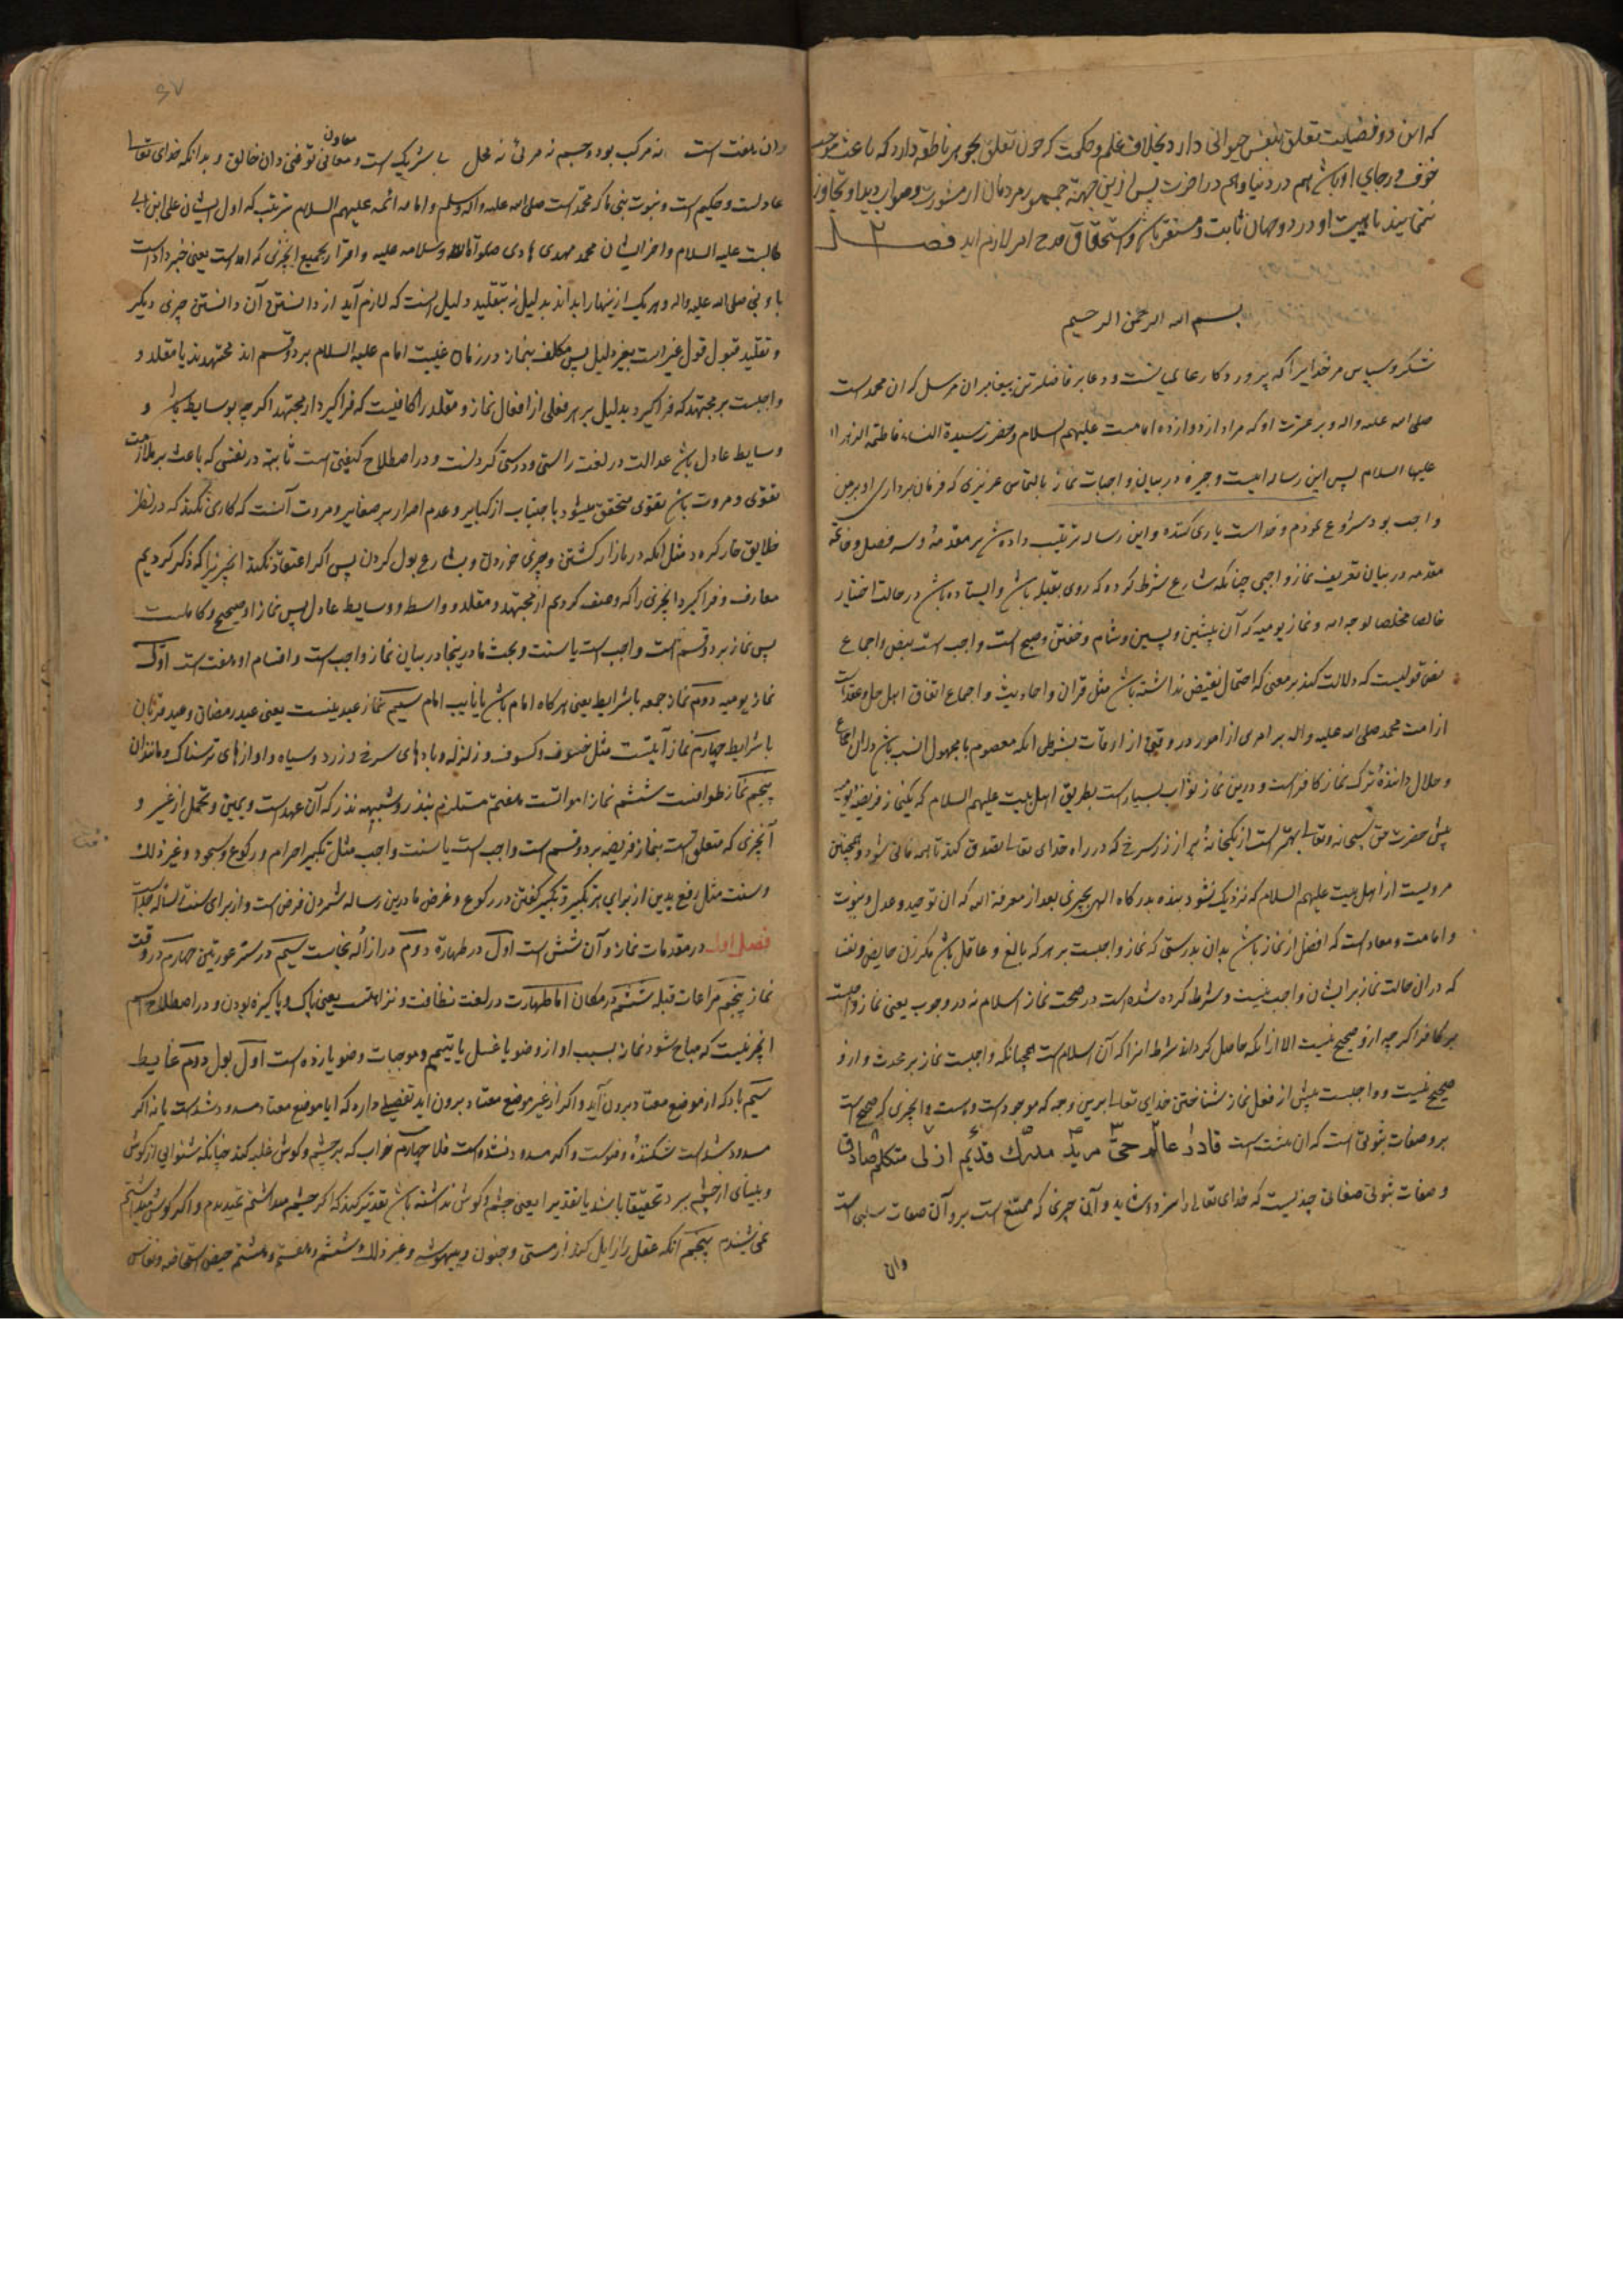 که این دو فضیلت تعلق بنفس حیوانی دارد بخلاف علم و حکمت که چون تعلق بجوهر ناطقه دارد که باعث
خوف و رجای او باشد هم در دنیا و هم در اخرت پس ازین جهة جمهور مردمان از مشورت و صوابدید او تجاوز
ننمایند تا هیبت او در دو جهان ثابت و مستقر باشد و استحقاق مدح امر لازم اید فصل ۲
بسم الله الرحمن الرحیم
شکر و سپاس مر خدایرا که پروردکار عالمیانست و دعا بر فاضلترین پیغامبران مرسل که ان محمد است
صلی الله علیه واله و بر عترت او که مراد از دوازده امامست علیهم السلام و حضرت سیدة النساء فاطمة الزهرا
علیها السلام پس این رساله ایست وجیزه در بیان واجبات نماز بالتماس عزیزی که فرمان برداری او بر من
واجب بود شروع نمودم و خداست یاری کننده و این رساله ترتیب داده شد بر مقدمة و سه فصل و خاتمة
مقدمه در بیان تعریف نماز واجبی چنانکه شارع شرط کرده که روی بقبله باشد و ایستاده باشد در حالت اختیار
خالصا مخلصا لوجه الله و نماز یومیه که آن پیشین و پسین و شام و خفتن و صبح است واجب است بنص و اجماع
نص قولیست که دلالت کند بر معنی که احتمال نقیض نداشته باشد مثل قران و احادیث و اجماع اتفاق اهل حل و عقد است
از امت محمد صلی الله علیه واله بر امری از امور در وقتی از اوقات بشرطی انکه معصوم یا مجهول النسب باشد در ان اجماع
و حلال دانندۀ ترک نماز کافر است و درین نماز ثواب بسیار است بطریق اهل بیت علیهم السلام که یکنماز فریضۀ یومیه
پیش حضرت حق سبحانه وتعالی بهتر است از یکخانۀ پر از زر سرخ که در راه خدای تعالی تصدق کنند تا همه فانی شود و همچنین
مرویست از اهل بیت علیهم السلام که نزدیک نشود بنده بدرکاه الهی بچیزی بعد از معرفة الله که ان توحید و عدل و نبوت
و امامت و معاد است که افضل از نماز باشد بدان بدرستی که نماز واجبست بر هر که بالغ و عاقل باشد مکر زن حایض و نفسا
که در ان حالت نماز بر ایشان واجب نیست و شرط کرده شده است در صحت نماز اسلام نه در وجوب یعنی نماز واجبست
بر کافر اکر چه ازو صحیح نیست الا از انکه حاصل کرداند شرط انرا که آن اسلام است همچنانکه واجبست نماز بر محدث و ازو
صحیح نیست و واجبست پیش از فعل نماز شناختن خدای تعالی برین وجه که موجود است و هست و انچیزی که صحیح است
برو صفات ثبوتی است که ان هشت است قادر عالم حی مرید مدرک قدیم ازلی متکلم صادق
و صفات ثبوتی صفاتی چندیست که خدای تعالی را سزد و شاید و آن چیزی که ممتنع است برو آن صفات سلبی است
وان
۶۷
وان هفت است نه مرکب بود و جسم نه مرئی نه محل بی شریک است و معانی تو غنی دان خالق و بدانکه خدای تعالی
معاون
عادلست و حکیم است و نبوت نبی ما که محمد است صلی الله علیه واله وسلم و امامه ائمه علیهم السلام بترتیب که اول ایشان علی ابن ابی
طالبست علیه السلام و اخر ایشان محمد مهدی هادی صلوات الله وسلامه علیه و اقرار بجمیع انچیزی که امده است یعنی خبر داده است
باو نبی صلی الله علیه واله و هر یک از ینها را بداند بدلیل نه بتقلید دلیل انست که لازم آید از دانستن آن دانستن چیزی دیکر
و تقلید قبول قول غیر است بغیر دلیل پس مکلف بنماز در زمان غیبت امام علیه السلام بر دو قسم اند مجتهدند یا مقلد و
واجبست بر مجتهد که فراکیرد بدلیل بر هر فعلی از افعال نماز و مقلد را کافیست که فراکیرد از مجتهد اکر چه بوسایط باشد و
وسایط عادل باشد عدالت در لغت راستی و درستی کردنست و در اصطلاح کیفیتی است ثابته در نفس که باعث بر ملازمت
تقوی و مروت باشد تقوی محقق میشود باجتناب از کبایر و عدم اصرار بر صغایر و مروت آنست که کاری نکند که در نظر
خلایق خار کردد مثل انکه در بازار کشتن و چیزی خوردن و بشارع بول کردن پس اکر اعتقاد نکند انچیزیرا که ذکر کردیم
معارف و فراکیرد انچیزی را که وصف کردیم از مجتهد و مقلد و واسط و وسایط عادل پس نماز او صحیح و کاملست
پس نماز بر دو قسم است واجب است یا سنت و بحث ما درینجا در بیان نماز واجب است و اقسام او هفت است اول
نماز یومیه دوم نماز جمعه با شرایط یعنی هرکاه امام باشد یا نایب امام سیم نماز عیدینست یعنی عید رمضان و عید قربان
با شرایط چهارم نماز آیاتست مثل خسوف و کسوف و زلزله و بادهای سرخ و زرد و سیاه و اوازهای ترسناک و مانند ان
پنجم نماز طوافست ششم نماز امواتست هفتم مستلزم بنذر و شبیه نذر که آن عهد است و یمین و تحمل از غیر و
آنچیزی که متعلق است بنماز فریضه بر دو قسم است واجب است یا سنت واجب مثل تکبیر احرام و رکوع و سجود و غیر ذلک
و سنت مثل رفع یدین از برای هر تکبیر و تکبیر کفتن در رکوع و غرض ما درین رساله شمردن فرض است و از برای سنت رساله جداست
فصل اول در مقدمات نماز و آن شش است اول در طهارة دوم در ازاله نجاست سیم در ستر عورتین چهارم در وقت
نماز پنجم مراعات قبله ششم در مکان اما طهارت در لغت نظافت و نزاهتست یعنی پاک و پاکیزه بودن و در اصطلاح اسم
انچیزیست که مباح شود نماز بسبب او از وضو یا غسل یا تیمم و موجبات وضو یازده است اول بول دوم غایط
سیم باد که از موضع معتاد بیرون آید و اکر از غیر موضع معتاد بیرون اید تفصیلی دارد که ایا موضع معتاد مسدود شده است یا نه اکر
مسدود شده است شکنندۀ وضوست و اکر مسدود نشده است فلا چهارم خواب که بر چشم و کوش غلبه کند چنانکه شنوایی از کوش
و بینای از چشم ببرد تحقیقا باشد یا تقدیرا یعنی چشم و کوش نداشته باشد تقدیر کند که اکر چشم میداشتم نمیدیدم و اکر کوش میداشتم
نمی شنیدم پنجم انکه عقل را زایل کند از مستی و جنون و بیهوشی و غیر ذلک و ششم و هفتم و هشتم حیض استحاضه و نفاس